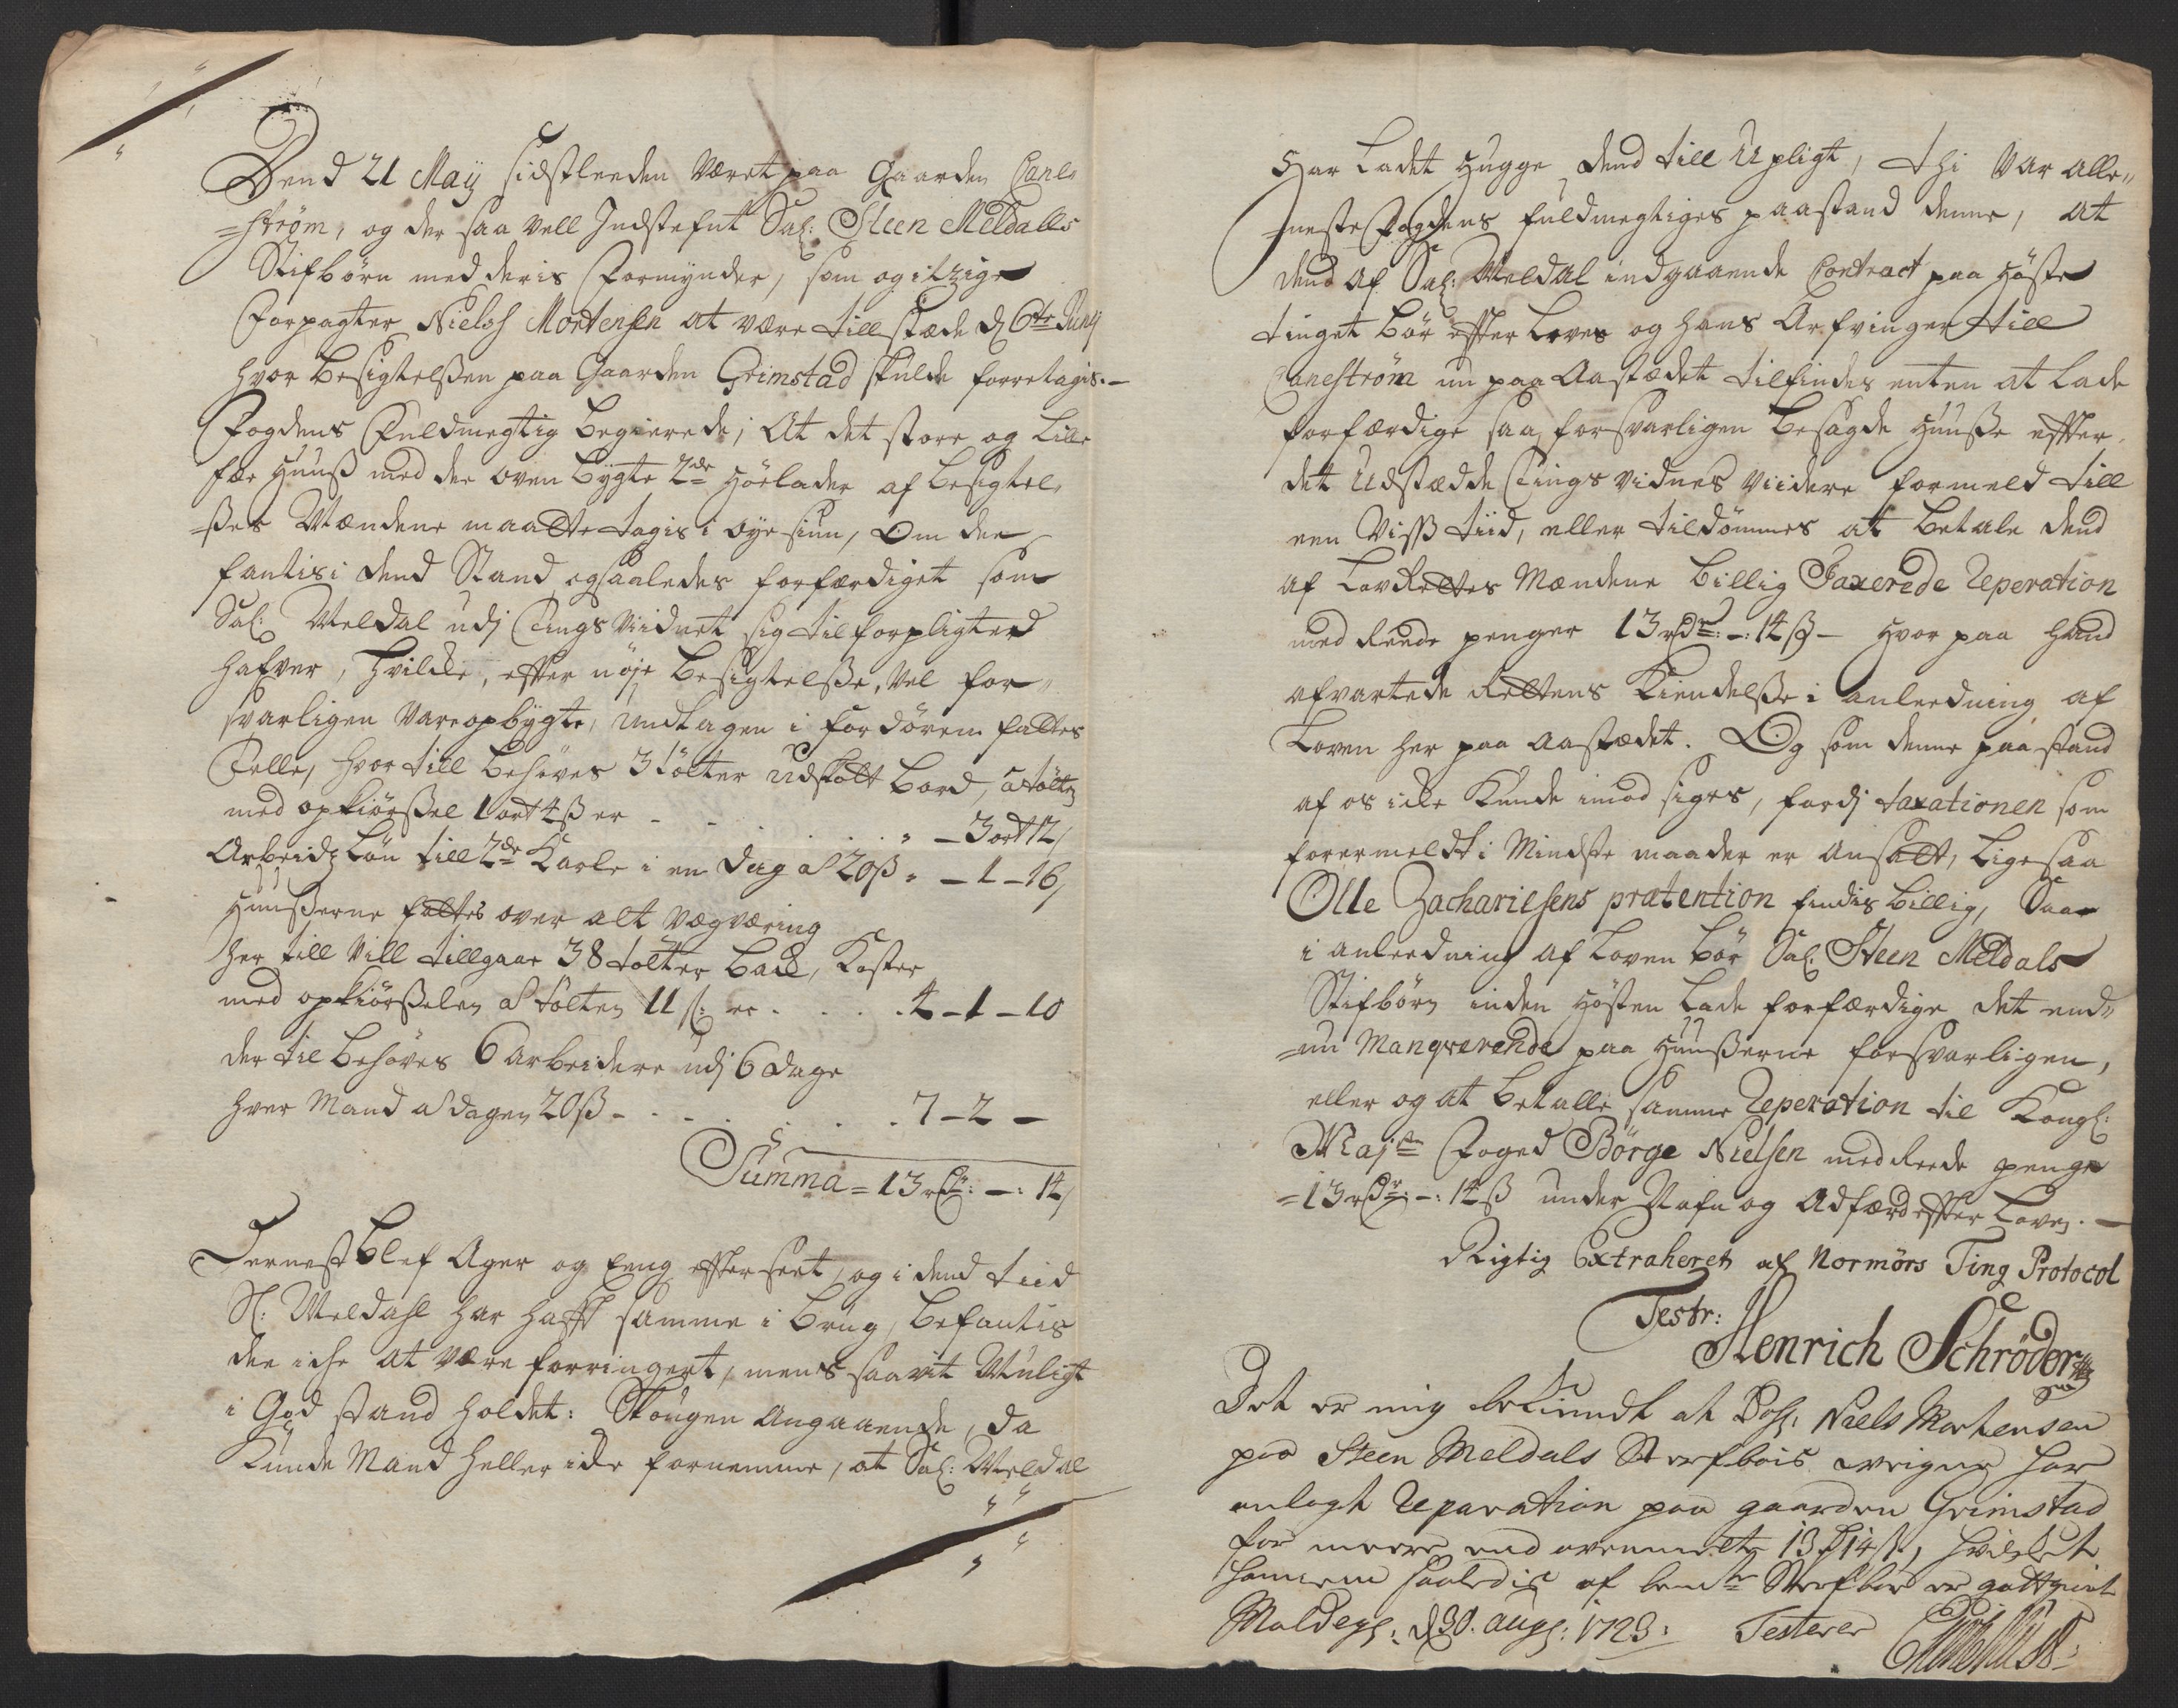 Dend 21 Maÿ sidstleeden Været paa Gaarden Canl„
=strøm, og der saa vell Indstefnt Sal: Steen Meldalls
Stifbørn med deris Formynder, som og itzige
Forpagter Nielss Mortensen at være till stæde d 6te Junÿ
hvor besigtelßen paa Gaarden Grimstad skulde forretagis. –
Fogdens Fuldmegtig begierede, At det store og lille
fæe Huuß med der oven bygte 2de Høelader af besigtel„
=ßes Mændene maatte tagis i øye siun, Om der
fantis i dend Stand og saaledes forfærdiget som
Sal: Meldal udj Tings Viidnet sig tilforpligted
hafver, hvilke, efter nøje besigtelße, vel for„
svarligen Vare opbygte, undtagen i for døren fattes
Telle, hvor till behøves 3 tølter Udskott bord, a tølten
med opkiørßel 1 ort 4 ß er - - . . . . " – 3 ort 12/
Arbeidz Løn till 2de Karle i en dag a 20 ß " – 1 – 16/
Huußerne fattes over alt vægværing
her till vill tillgaae 38 tølter bak, koster
med opkiørßelen a tølten 11 ß: er . . . . 4 – 1 – 10
der til behøves 6 Arbeidere udj 6 dage
hver Mand a dagen 20 ß – . . . . . . 7 – 2 –
Summa = 13 rdr: –: 14/
Dernest blef Ager og Eng efterseet, og i dend tiid
Sl: Meldahl har hafft samme i brug, befantis
det iche at være forringert, mens saavit Muligt
i God stand holdet: Skougen Angaaende, da
kunde Mand heller icke fornemme, at Sal: Meldal
Har ladet Hugge dend till Upligt, thi var alle„
=neste Fogdens fuldmegtiges paastand denne, at
dend af Sal: Meldal indgaaende Contract paa Høste
tinget bør efter leves og hans Arfvinger till
Canestrøm nu paa Aastædet tilfindes enten at lade
forfærdige saa forsvarligen besagde Huuße efter
det Udstædde Tings vidnes viidere formeld till
een Viss tiid, eller tildømmes at betale dend
af LavRettes Mændene billig Taxerede Reperation
med Reede penger 13 rdr: –: 14 ß – Hvor paa hand
afvartede Rettens Kiendelße i anleedning af
Loven her paa aastædet. Og som denne paastand
af os icke kunde imod siges, fordj taxationen som
forermeldt i Mindste maader er Ansatt, lige saa
Olle Zachariesens prætention findis billig, Saa
i anleedning af Loven bør Sal: Steen Meldals
Stifbørn inden Høsten lade forfærdige det end„
=nu Manqverende paa Huußerne forsvarligen,
eller og at betalle samme Reperation til Kongl:
Maj:ts Foged Børge Nielsen med Reede penge
=13 rdr: –: 14 ß under Nafn og Adfærd efter Loven. –
Rigtig Extraheret af Normørs Ting Protocol
Testr: Henrich Schrøder
Det er mig bekiendt at Niels Mortensen
paa Steen Meldals Sterfbois veigne har
anlagt Reparation paa gaarden Grimstad
for meere end ovenmelte 13 rd 14 ß, hvilket
hannem saaledis af bemte Sterfboe er godtgiort
Moldegd: d 30. Augs: 1723: Testerer